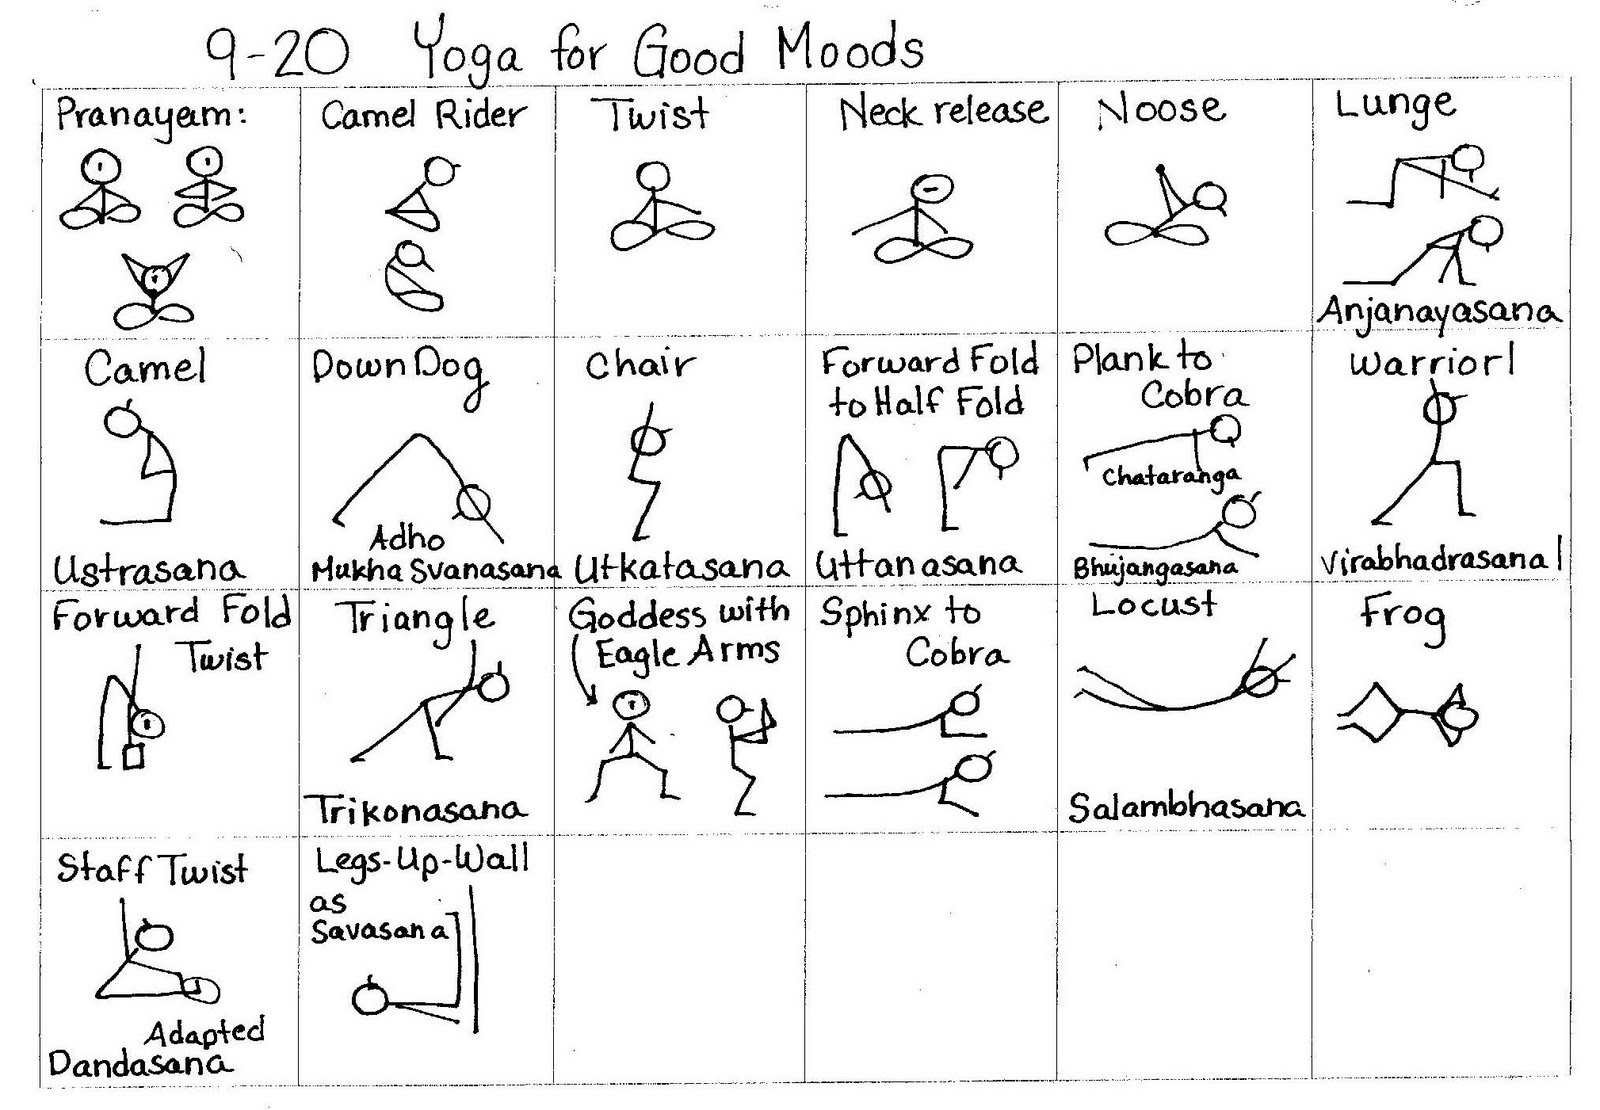 9-20 Yoga for Good Moods
Pranayam:
Camel Rider
Twist
Neck release
Noose
Lunge
Anjanayasana
Camel
Ustrasana
Down Dog
Adho
Mukha Svanasana
Chair
Utkatasana
Forward Fold
to Half Fold
Uttanasana
Plank to
Cobra
Chataranga
Bhujangasana
Warrior I
Virabhadrasana I
Forward Fold
Twist
Triangle
Trikonasana
Goddess with
Eagle Arms
Sphinx to
Cobra
Locust
Salambhasana
Frog
Staff Twist
Adapted
Dandasana
Legs-Up-Wall
as
Savasana